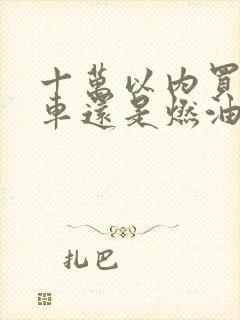 十萬以内買
車還是燃油
扎巴